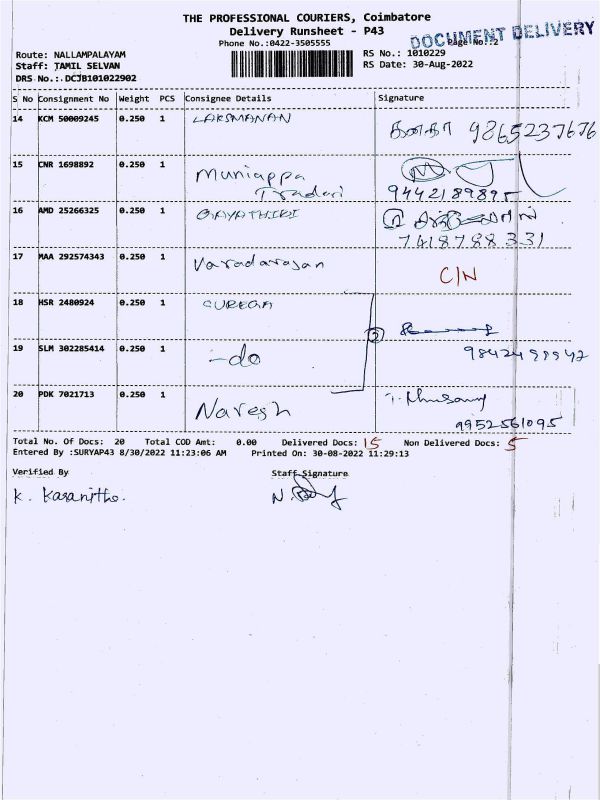 THE PROFESSIONAL COURIERS, Coimbatore
Delivery Runsheet - P43
DOCUMENT DELIVERY
Phone No.:0422-3505555
Page No.:2
Route: NALLAMPALAYAM
RS No.: 1010229
Staff: TAMIL SELVAN
RS Date: 30-Aug-2022
DRS No.:.DCJB101022902
S No Consignment No Weight PCS Consignee Details Signature
14 KCM 50009245 0.250 1 LAKSMANAN
கனகா 9865237676
15 CNR 1698892 0.250 1 Muniappa
Traderi 9442189895
16 AMD 25266325 0.250 1 GAYATHIRI
7418788331
17 MAA 292574343 0.250 1 Varadarajan C/N
18 HSR 2480924 0.250 1 SUREGA
2
19 SLM 302285414 0.250 1 -do
20 PDK 7021713 0.250 1 Naresh
9952561095
Total No. Of Docs: 20 Total COD Amt: 0.00 Delivered Docs: 15 Non Delivered Docs: 5
Entered By :SURYAP43 8/30/2022 11:23:06 AM Printed On: 30-08-2022 11:29:13
Verified By Staff Signature
K. Kasanitha.